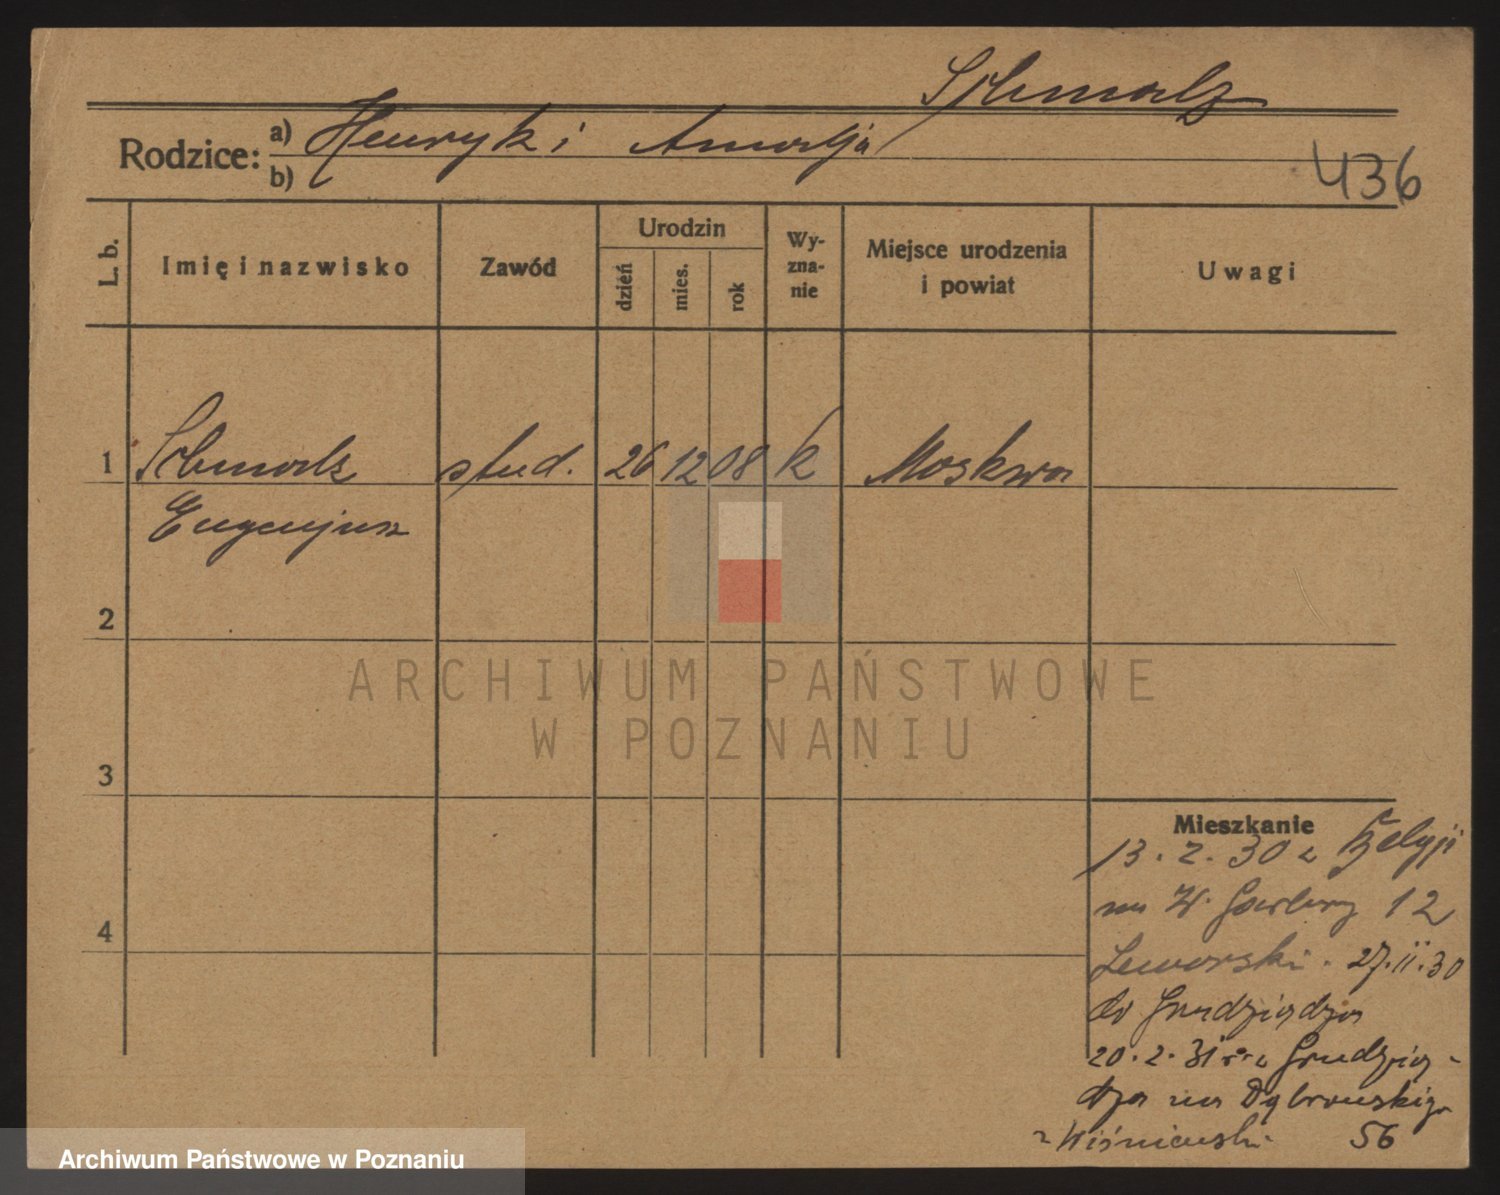 Schmalz
Rodzice: a) Henryk i Amalja
b)
436
L. b.
Imię i nazwisko
Zawód
Urodzin
dzień
mies.
rok
Wy-
zna-
nie
Miejsce urodzenia
i powiat
Uwagi
1 Schmalz stud. 26 12 08 k Moskwa
Eugenjusz
2
3
4
ARCHIWUM PAŃSTWOWE
W POZNANIU
Mieszkanie
13. 2. 30 z Belgji
na W. Garbary 12
27.II.30
do Grudziądza
20. 2. 31 z Grudzią-
dza na Dąbrowskiego
Wiśniewski 56
Archiwum Państwowe w Poznaniu